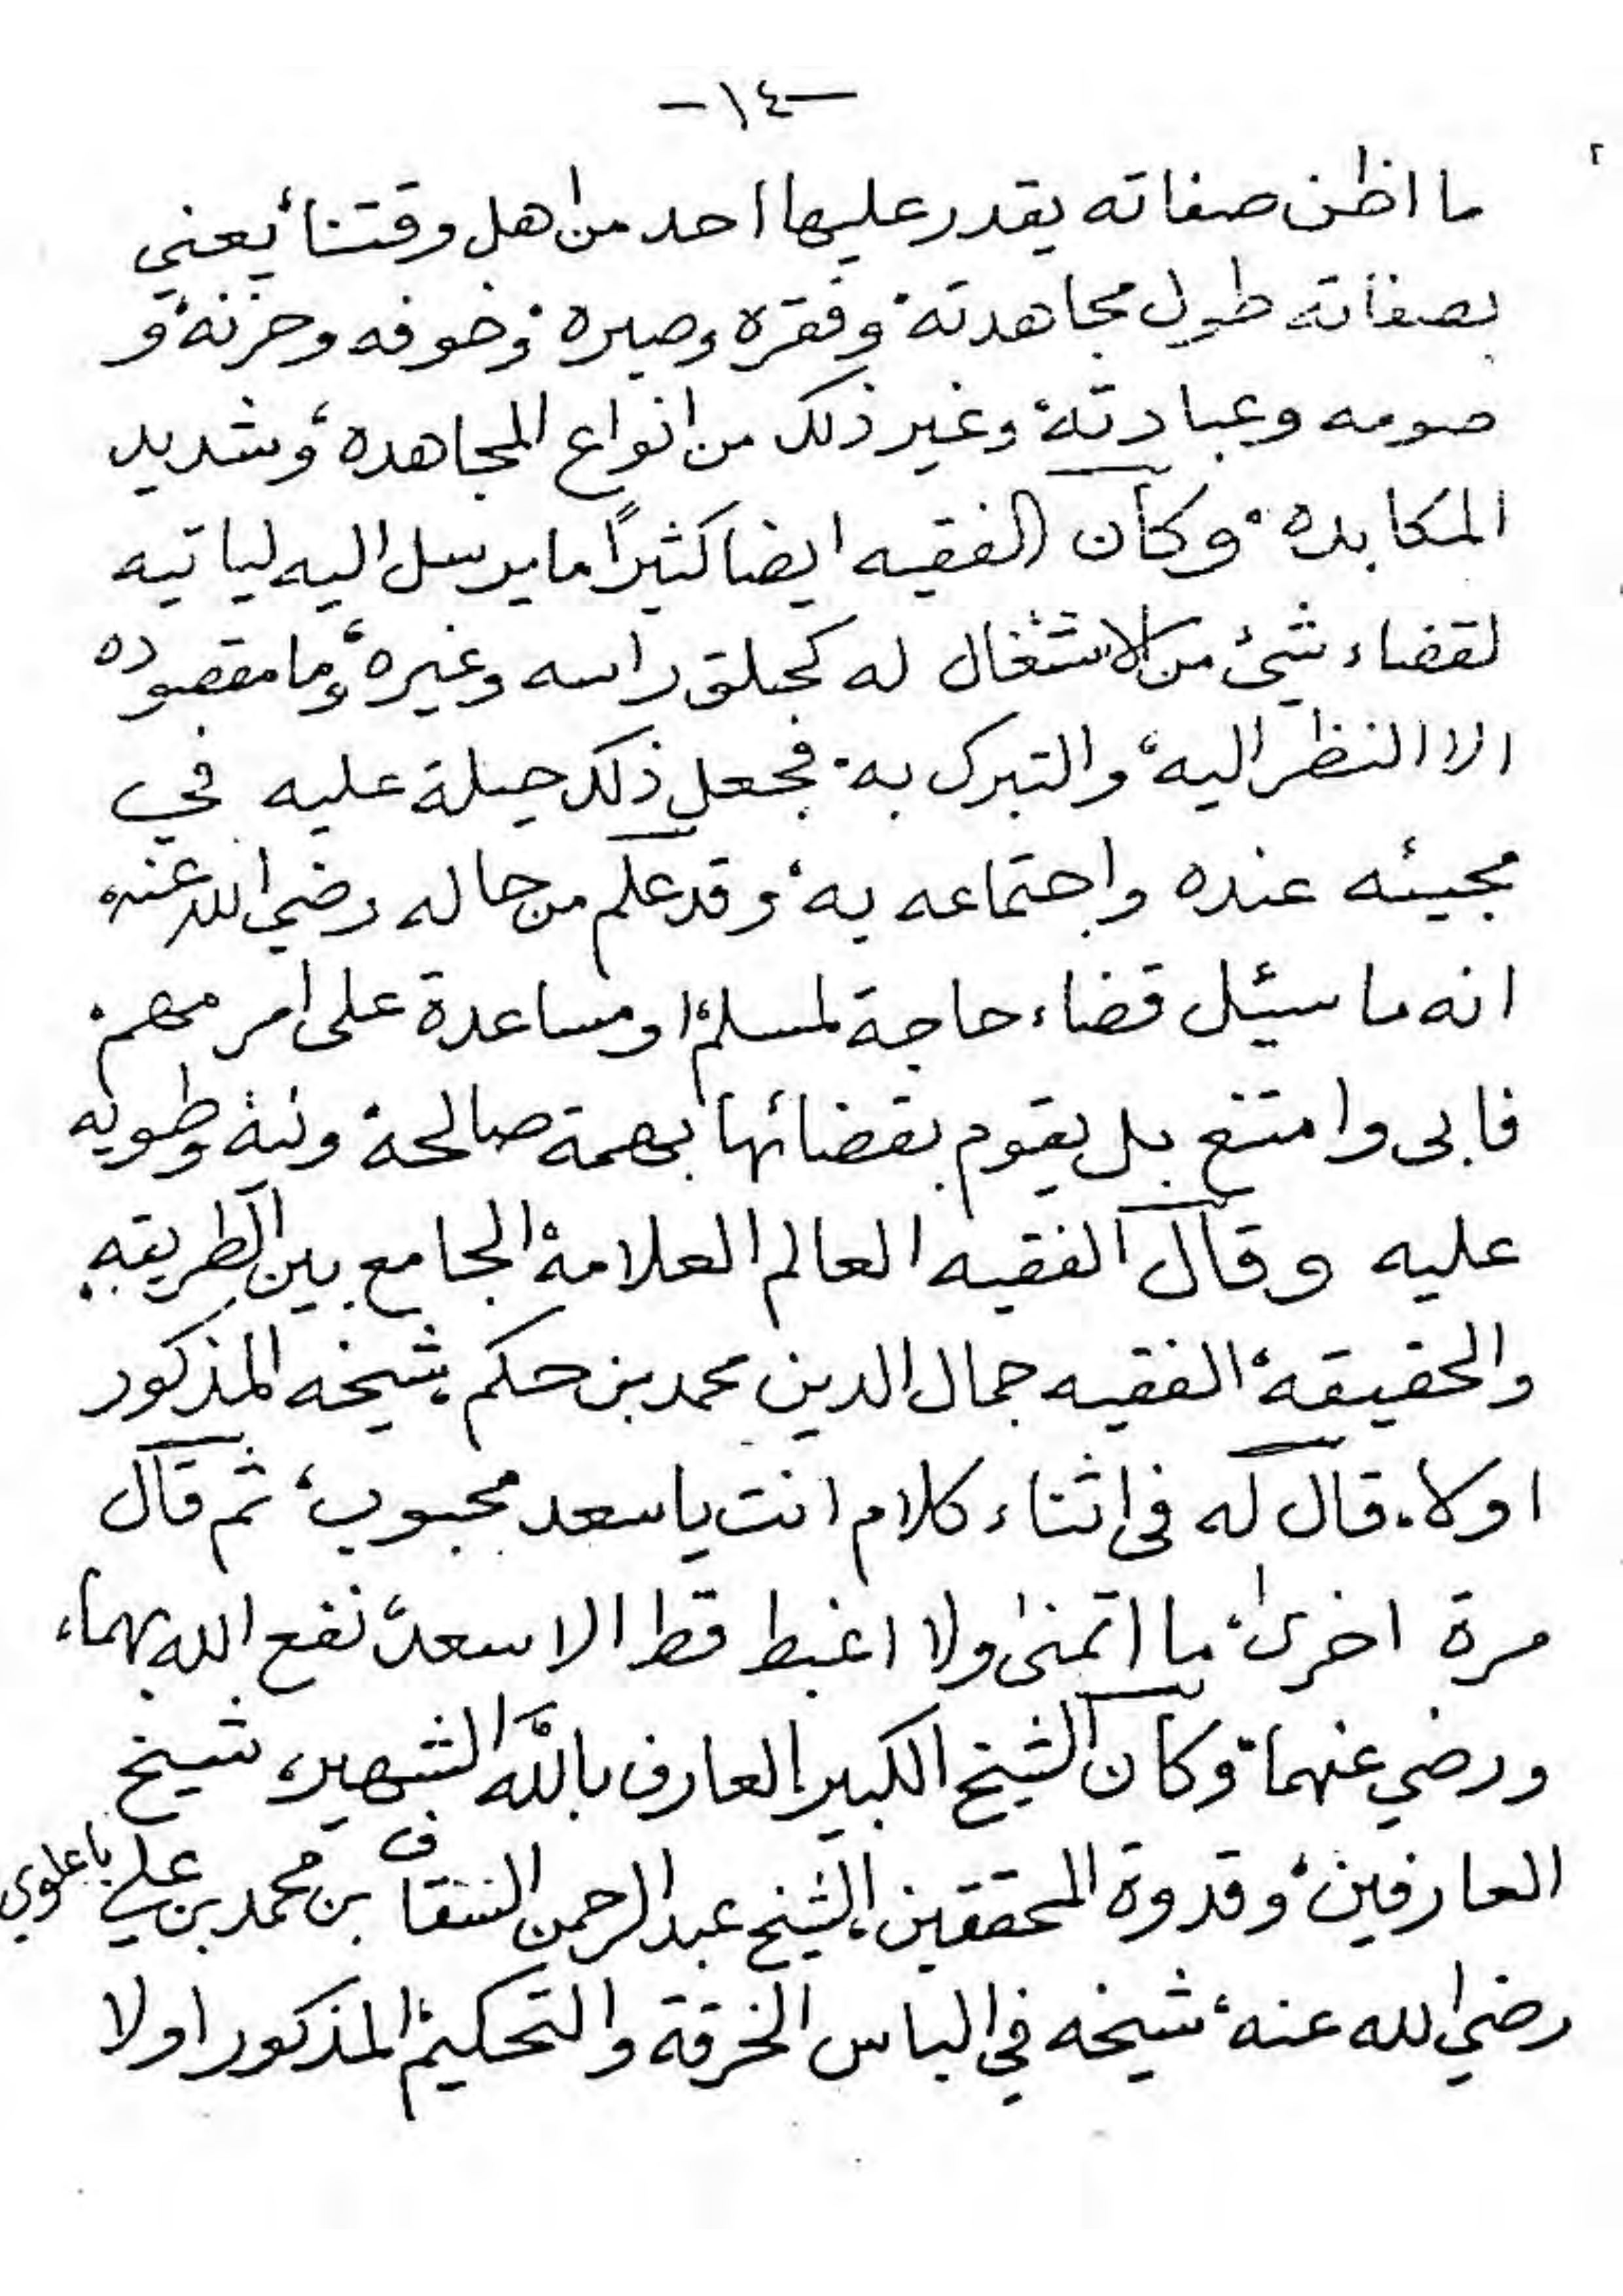 -١٤-
ما اظن صفاته يقدر عليها احد من اهل وقتنا، يعني
بصفاته طول مجاهدته، وفقره وصبره، وخوفه وحزنه، و
صومه وعبادته، وغير ذلك من انواع المجاهده، وشديد
المكابده، وكان الفقيه ايضا كثيرًا ما يرسل اليه لياتيه
لقضاء شيئ من الاشتغال له كحلق راسه وغيره، وما مقصوده
الا النظر اليه، والتبرك به، فجعل ذلك حيلة عليه في
مجيئه عنده واجتماعه به، وقد علم من حاله رضي الله عنه
انه ما سئل قضاء حاجة لمسلم، او مساعدة على امر مهم،
فابى وامتنع بل يقوم بقضائها بهمة صالحة ونية وطويه
عليه وقال الفقيه العالم العلامة، الجامع بين الطريقه
والحقيقة، الفقيه جمال الدين محمد بن حكم، شيخه المذكور
اولا، قال له في اثناء كلام انت يا سعد محبوب، ثم قال
مرة اخرى، ما اتمنى ولا اغبط قط الا سعد، نفع الله بهما،
ورضي عنهما، وكان الشيخ الكبير العارف بالله الشهير، شيخ
العارفين، وقدوة المحققين، الشيخ عبد الرحمن السقاف بن محمد بن علي باعلوي
رضي الله عنه، شيخه في الباس الخرقة والتحكيم، المذكور اولا